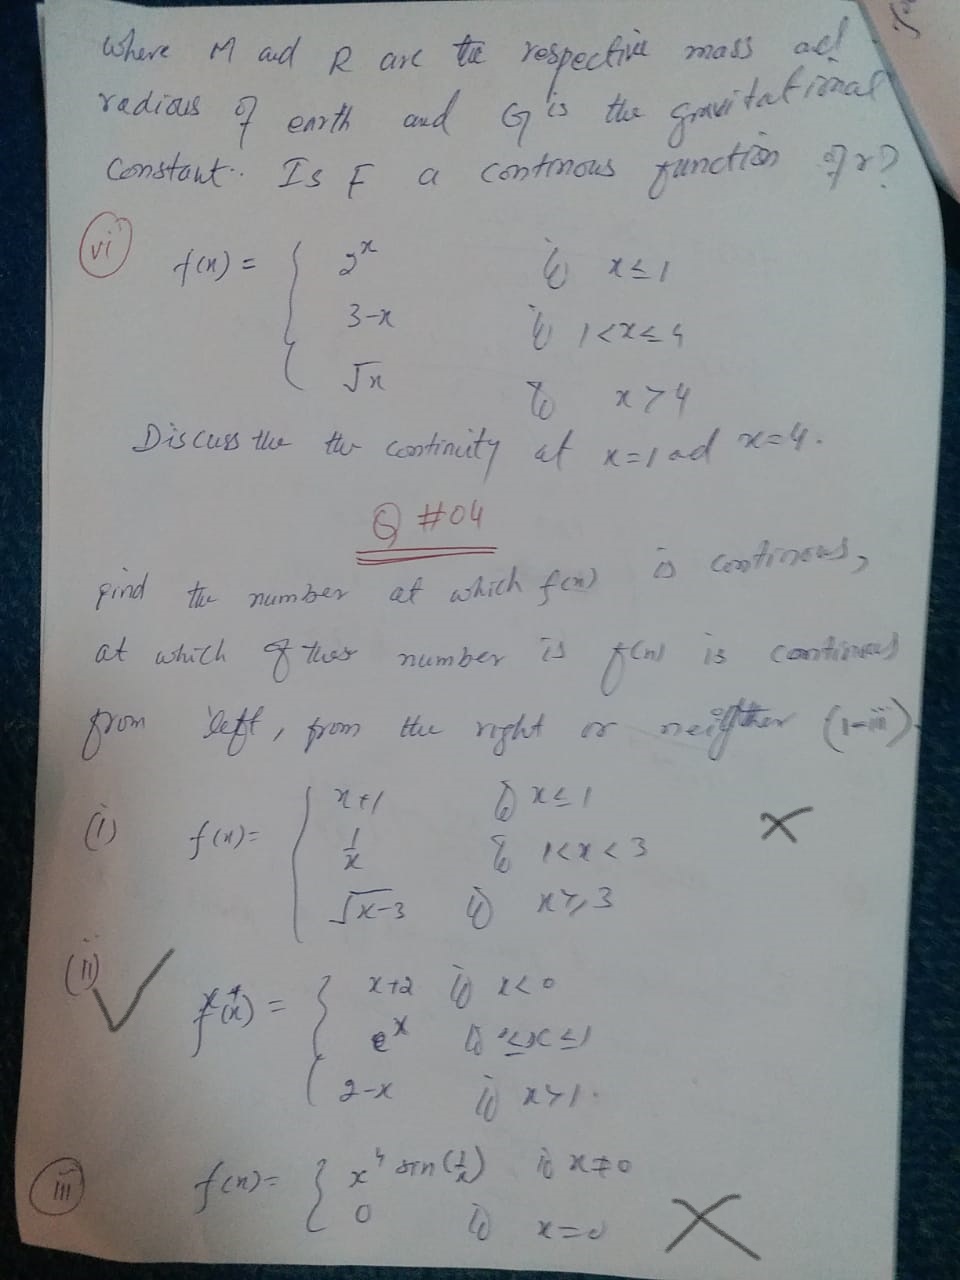 where M and R are the respective mass and
radious of earth and G is the gravitational
constant. Is F a continous function of r?
(vi) f(x) = { 2^x if x ≤ 1
3-x if 1 < x ≤ 4
√x if x > 4
Discuss the the continuity at x=1 and x=4.
Q #04
find the number at which f(x) is continous,
at which of these number is f(x) is continous
from left, from the right or neigther (i-iii)
(i) f(x) = { x+1 if x ≤ 1
1/x if 1 < x < 3
√x-3 if x ≥ 3
(ii) f(x) = { x+2 if x < 0
e^x if 0 ≤ x ≤ 1
2-x if x > 1.
(iii) f(x) = { x^4 sin(1/x) if x ≠ 0
0 if x = 0